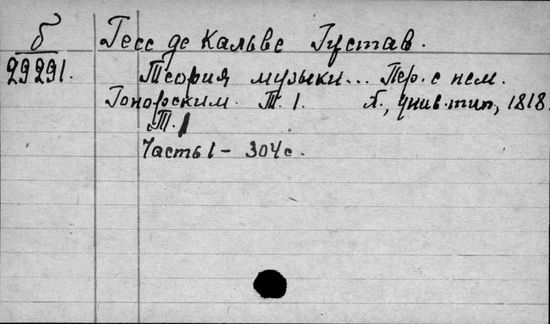 б Гесс де Кальве Густав.
29291. Теория музыки... Пер. с нем.
Гонорским. Т. 1. Х., унив. тип., 1818.
Т. 1
Часть 1 - 304 с.